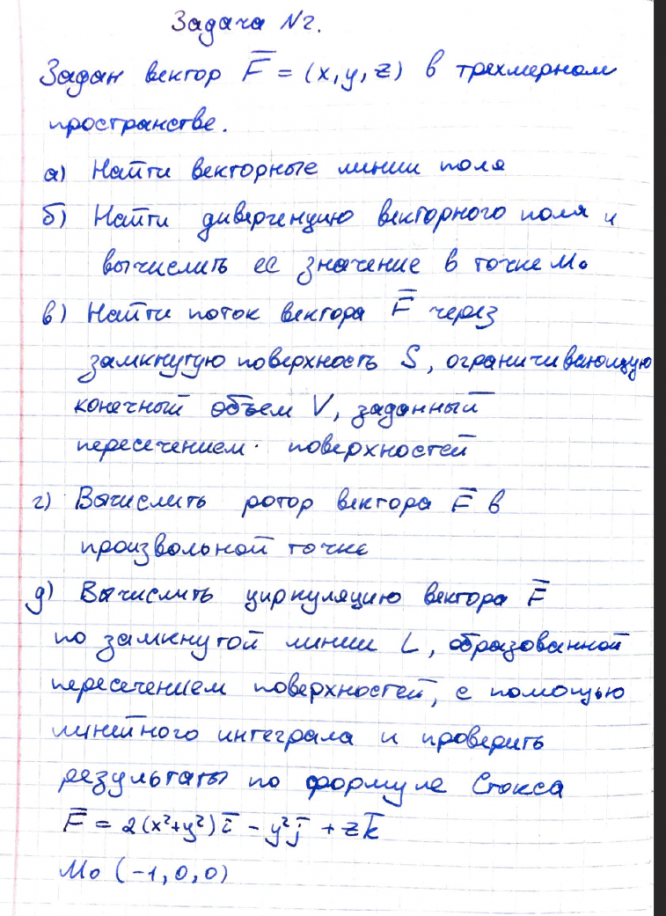 Задача N2.
Задан вектор F̅ = (x, y, z) в трехмерном
пространстве.
а) Найти векторные линии поля
б) Найти дивергенцию векторного поля и
вычислить ее значение в точке M₀
в) Найти поток вектора F̅ через
замкнутую поверхность S, ограничивающую
конечный объем V, заданный
пересечением поверхностей
г) Вычислить ротор вектора F̅ в
произвольной точке
д) Вычислить циркуляцию вектора F̅
по замкнутой линии L, образованной
пересечением поверхностей, с помощью
линейного интеграла и проверить
результаты по формуле Стокса
F̅ = 2(x²+y²)i̅ - y²j̅ + zk̅
M₀ (-1, 0, 0)